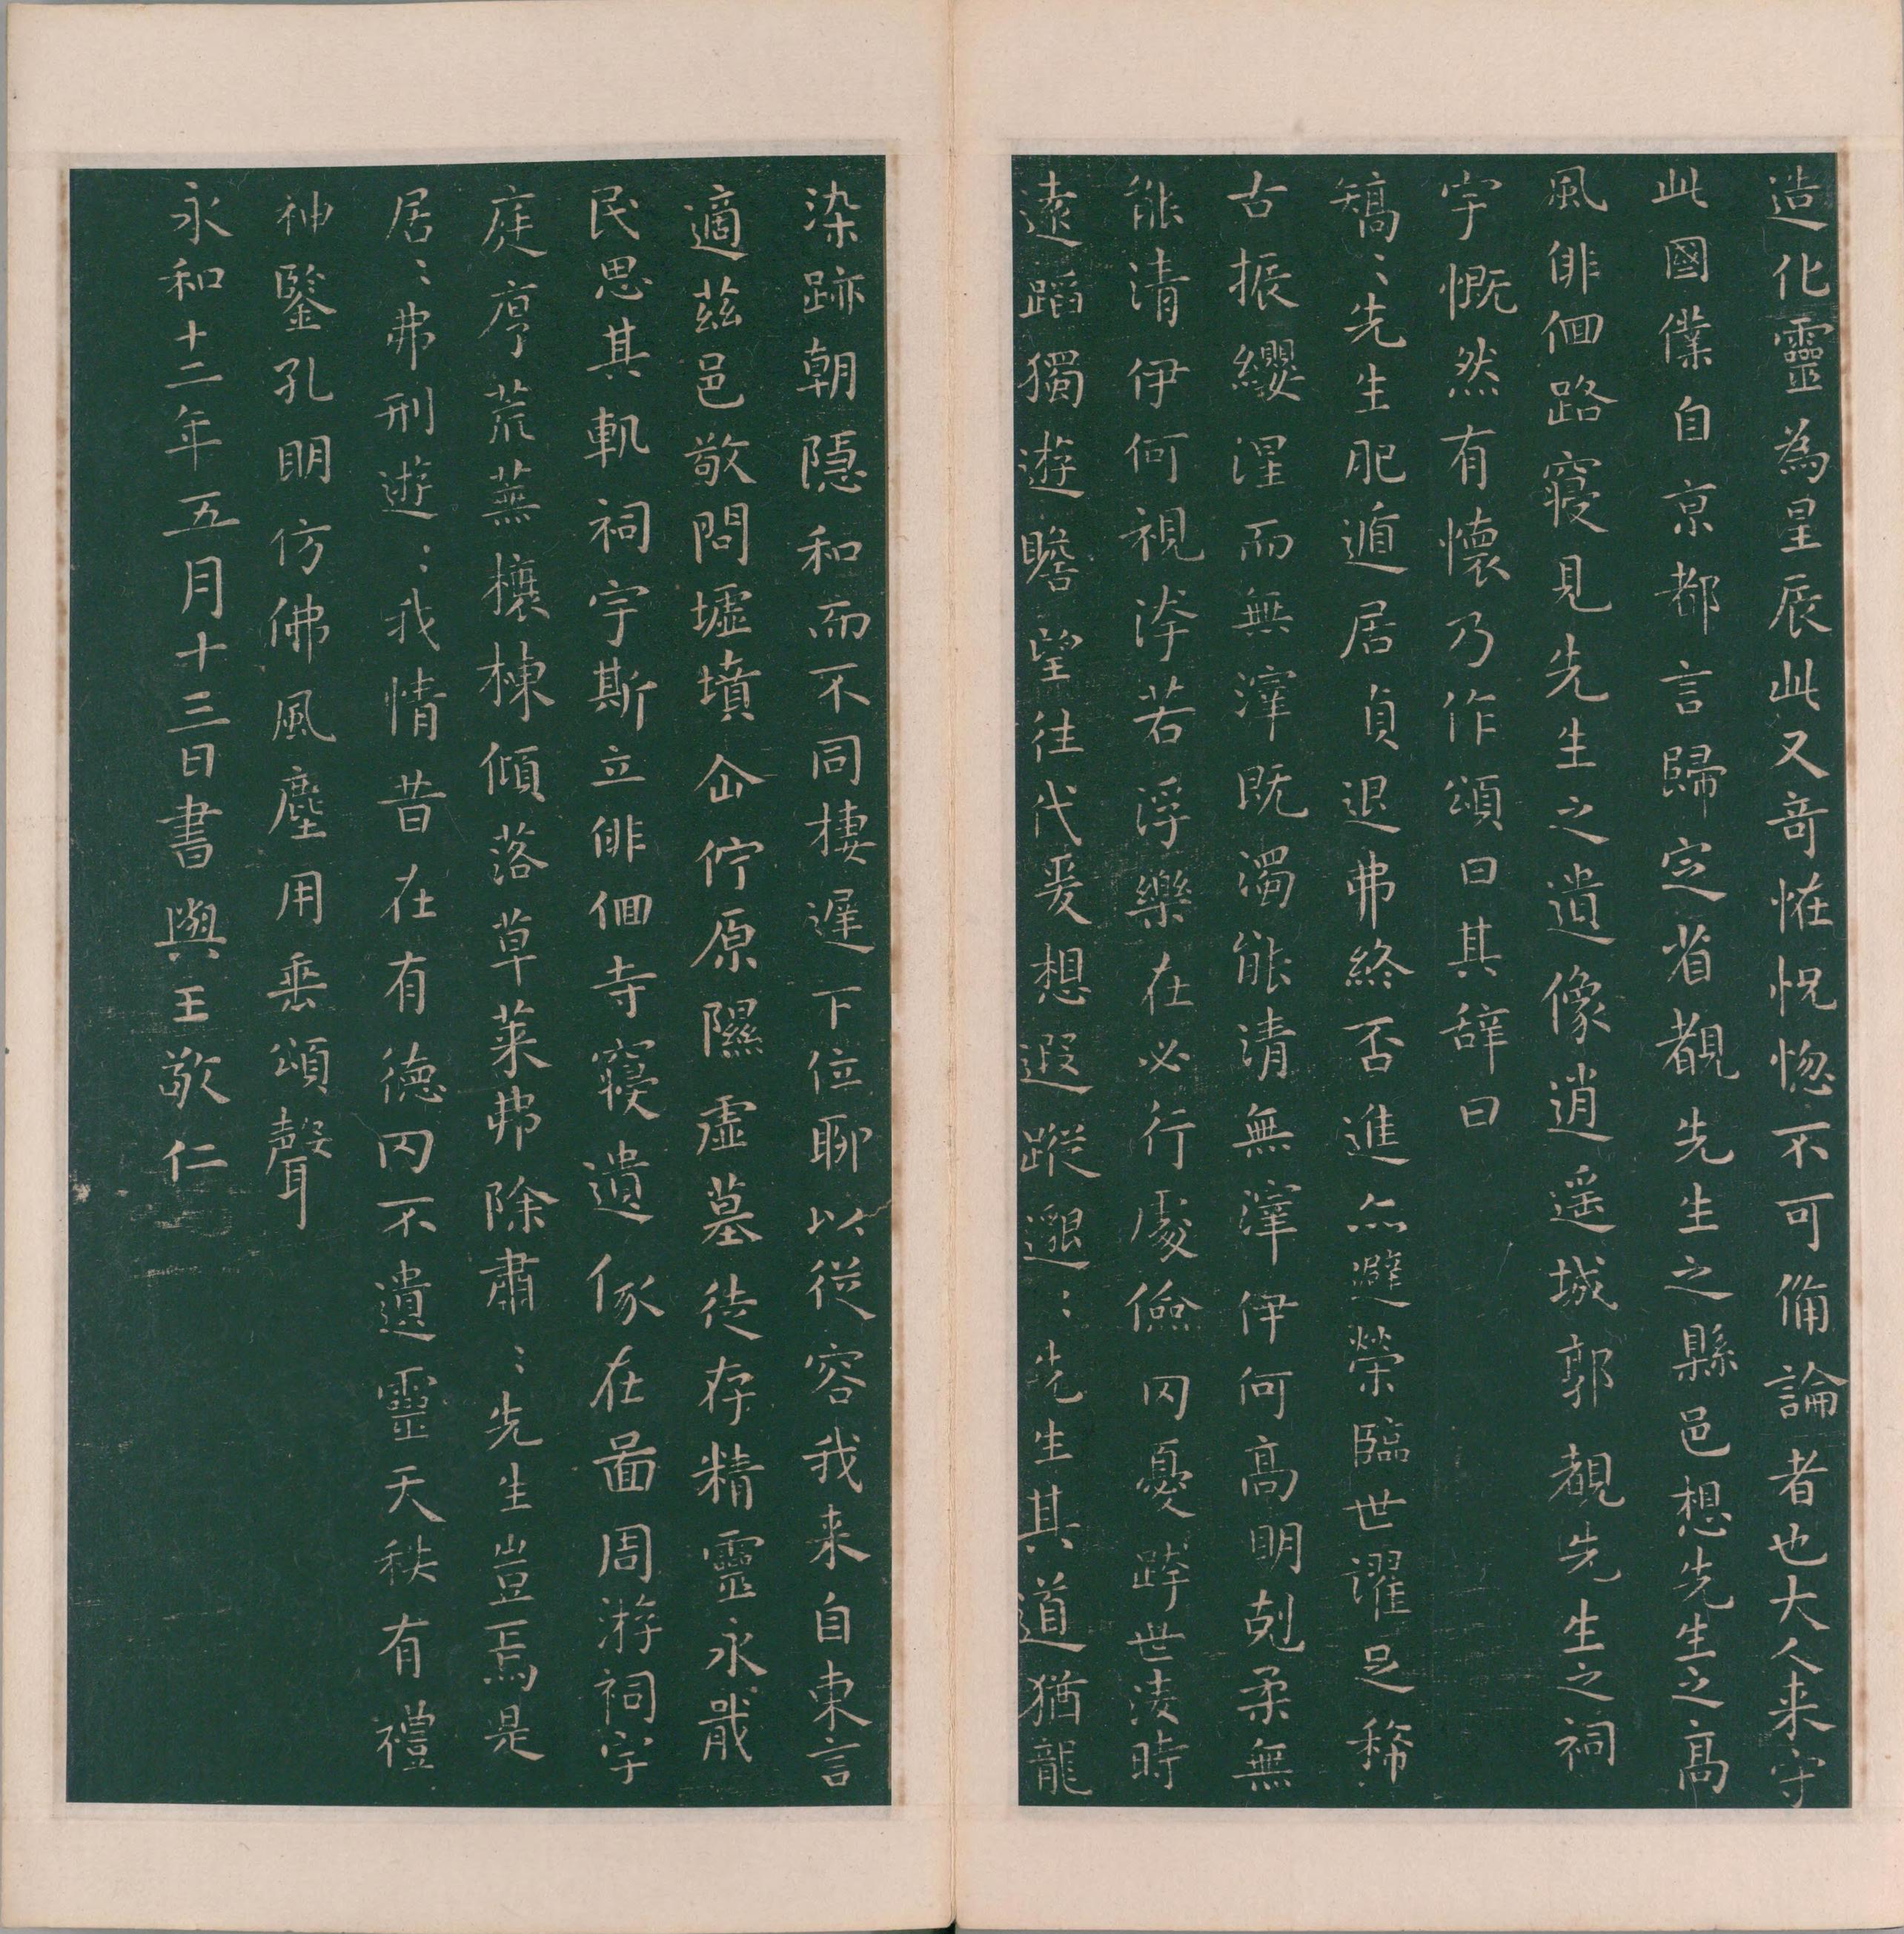 造化靈為星辰此又奇恠怳惚不可俻論者也大人来守
此國僕自京都言歸定省覩先生之縣邑想先生之高
風俳佪路寢見先生之遺像逍遥城郭覩先生之祠
宇慨然有懷乃作頌曰其辞曰
矯〻先生肥遁居貞退弗終否進亦避榮臨世濯足稀
古振纓涅而無滓既濁能清無滓伊何高明剋柔無
能清伊何視洿若浮樂在必行處儉罔憂跨世淩時
遠蹈獨遊瞻望往代爰想遐蹤邈〻先生其道猶龍
染跡朝隱和而不同棲遲下位聊以從容我来自東言
適茲邑敬問墟墳企佇原隰虛墓徒存精靈永戢
民思其軌祠宇斯立俳佪寺寢遺像在啚周游祠宇
庭序荒蕪榱棟傾落草萊弗除肅〻先生豈焉是
居〻弗刑遊〻我情昔在有德罔不遺靈天秩有禮
神鑒孔明仿佛風塵用垂頌聲
永和十二年五月十三日書與王敬仁